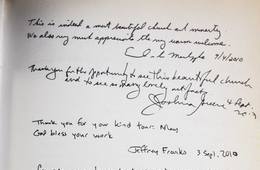 This is indeed a most beautiful church at
We also very much appreciate the very warm welcome.
9/4/2010
Thank you for the opportunity to see this beautiful church
and to see so many lovely artifacts
Joshua
Thank you for your kind tour. May
God bless your work
Jeffrey Franks 3 Sept, 2010